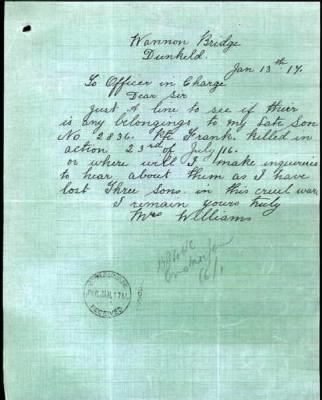 Wannon Bridge
Dunkeld.
Jan 13th 17.
To Officer in Charge
Dear Sir
Just A line to see if their
is any belongings to my Late Son
No. 2836. Pte Frank. killed in
action 23rd of July /16.
or where will I make inqueries
to hear about them as I have
lost Three Sons in this cruel war
I remain yours truly
Mrs Williams
16/1
RECEIVED